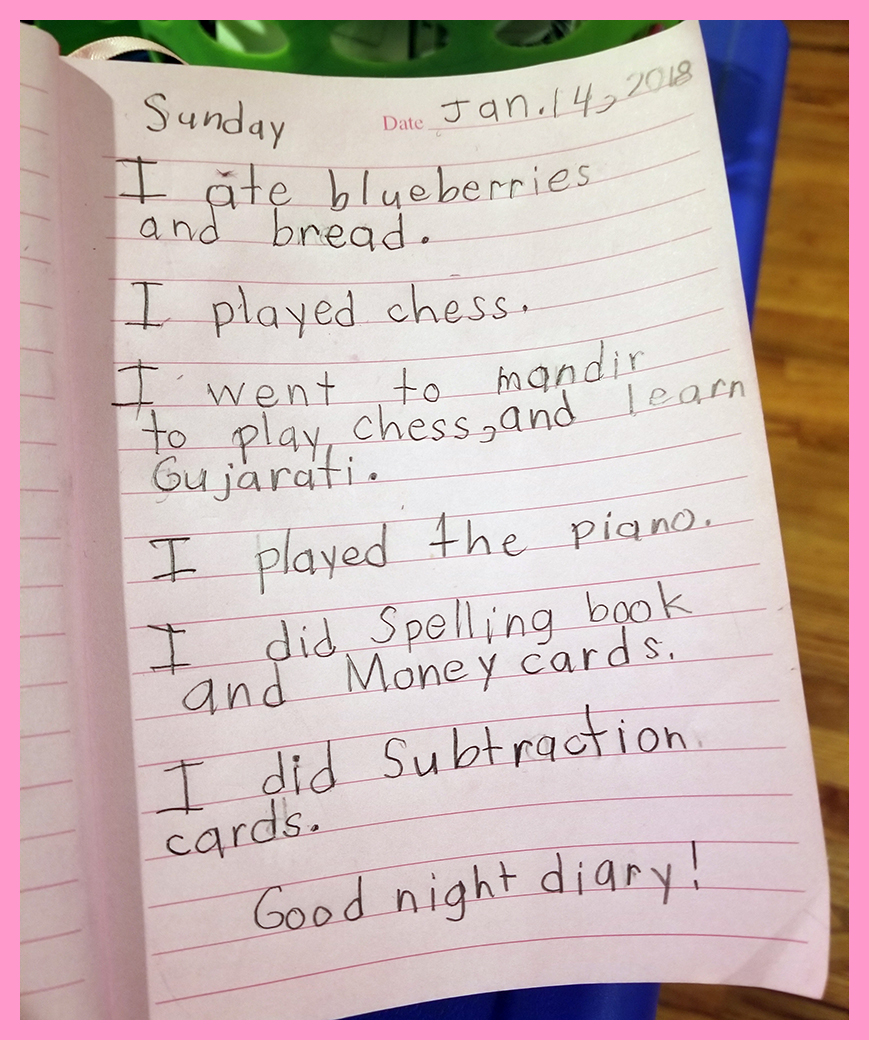 Sunday Date Jan. 14, 2018
I ate blueberries
and bread.
I played chess.
I went to mandir
to play chess, and learn
Gujarati.
I played the piano.
I did Spelling book
and Money cards.
I did Subtraction
cards.
Good night diary!